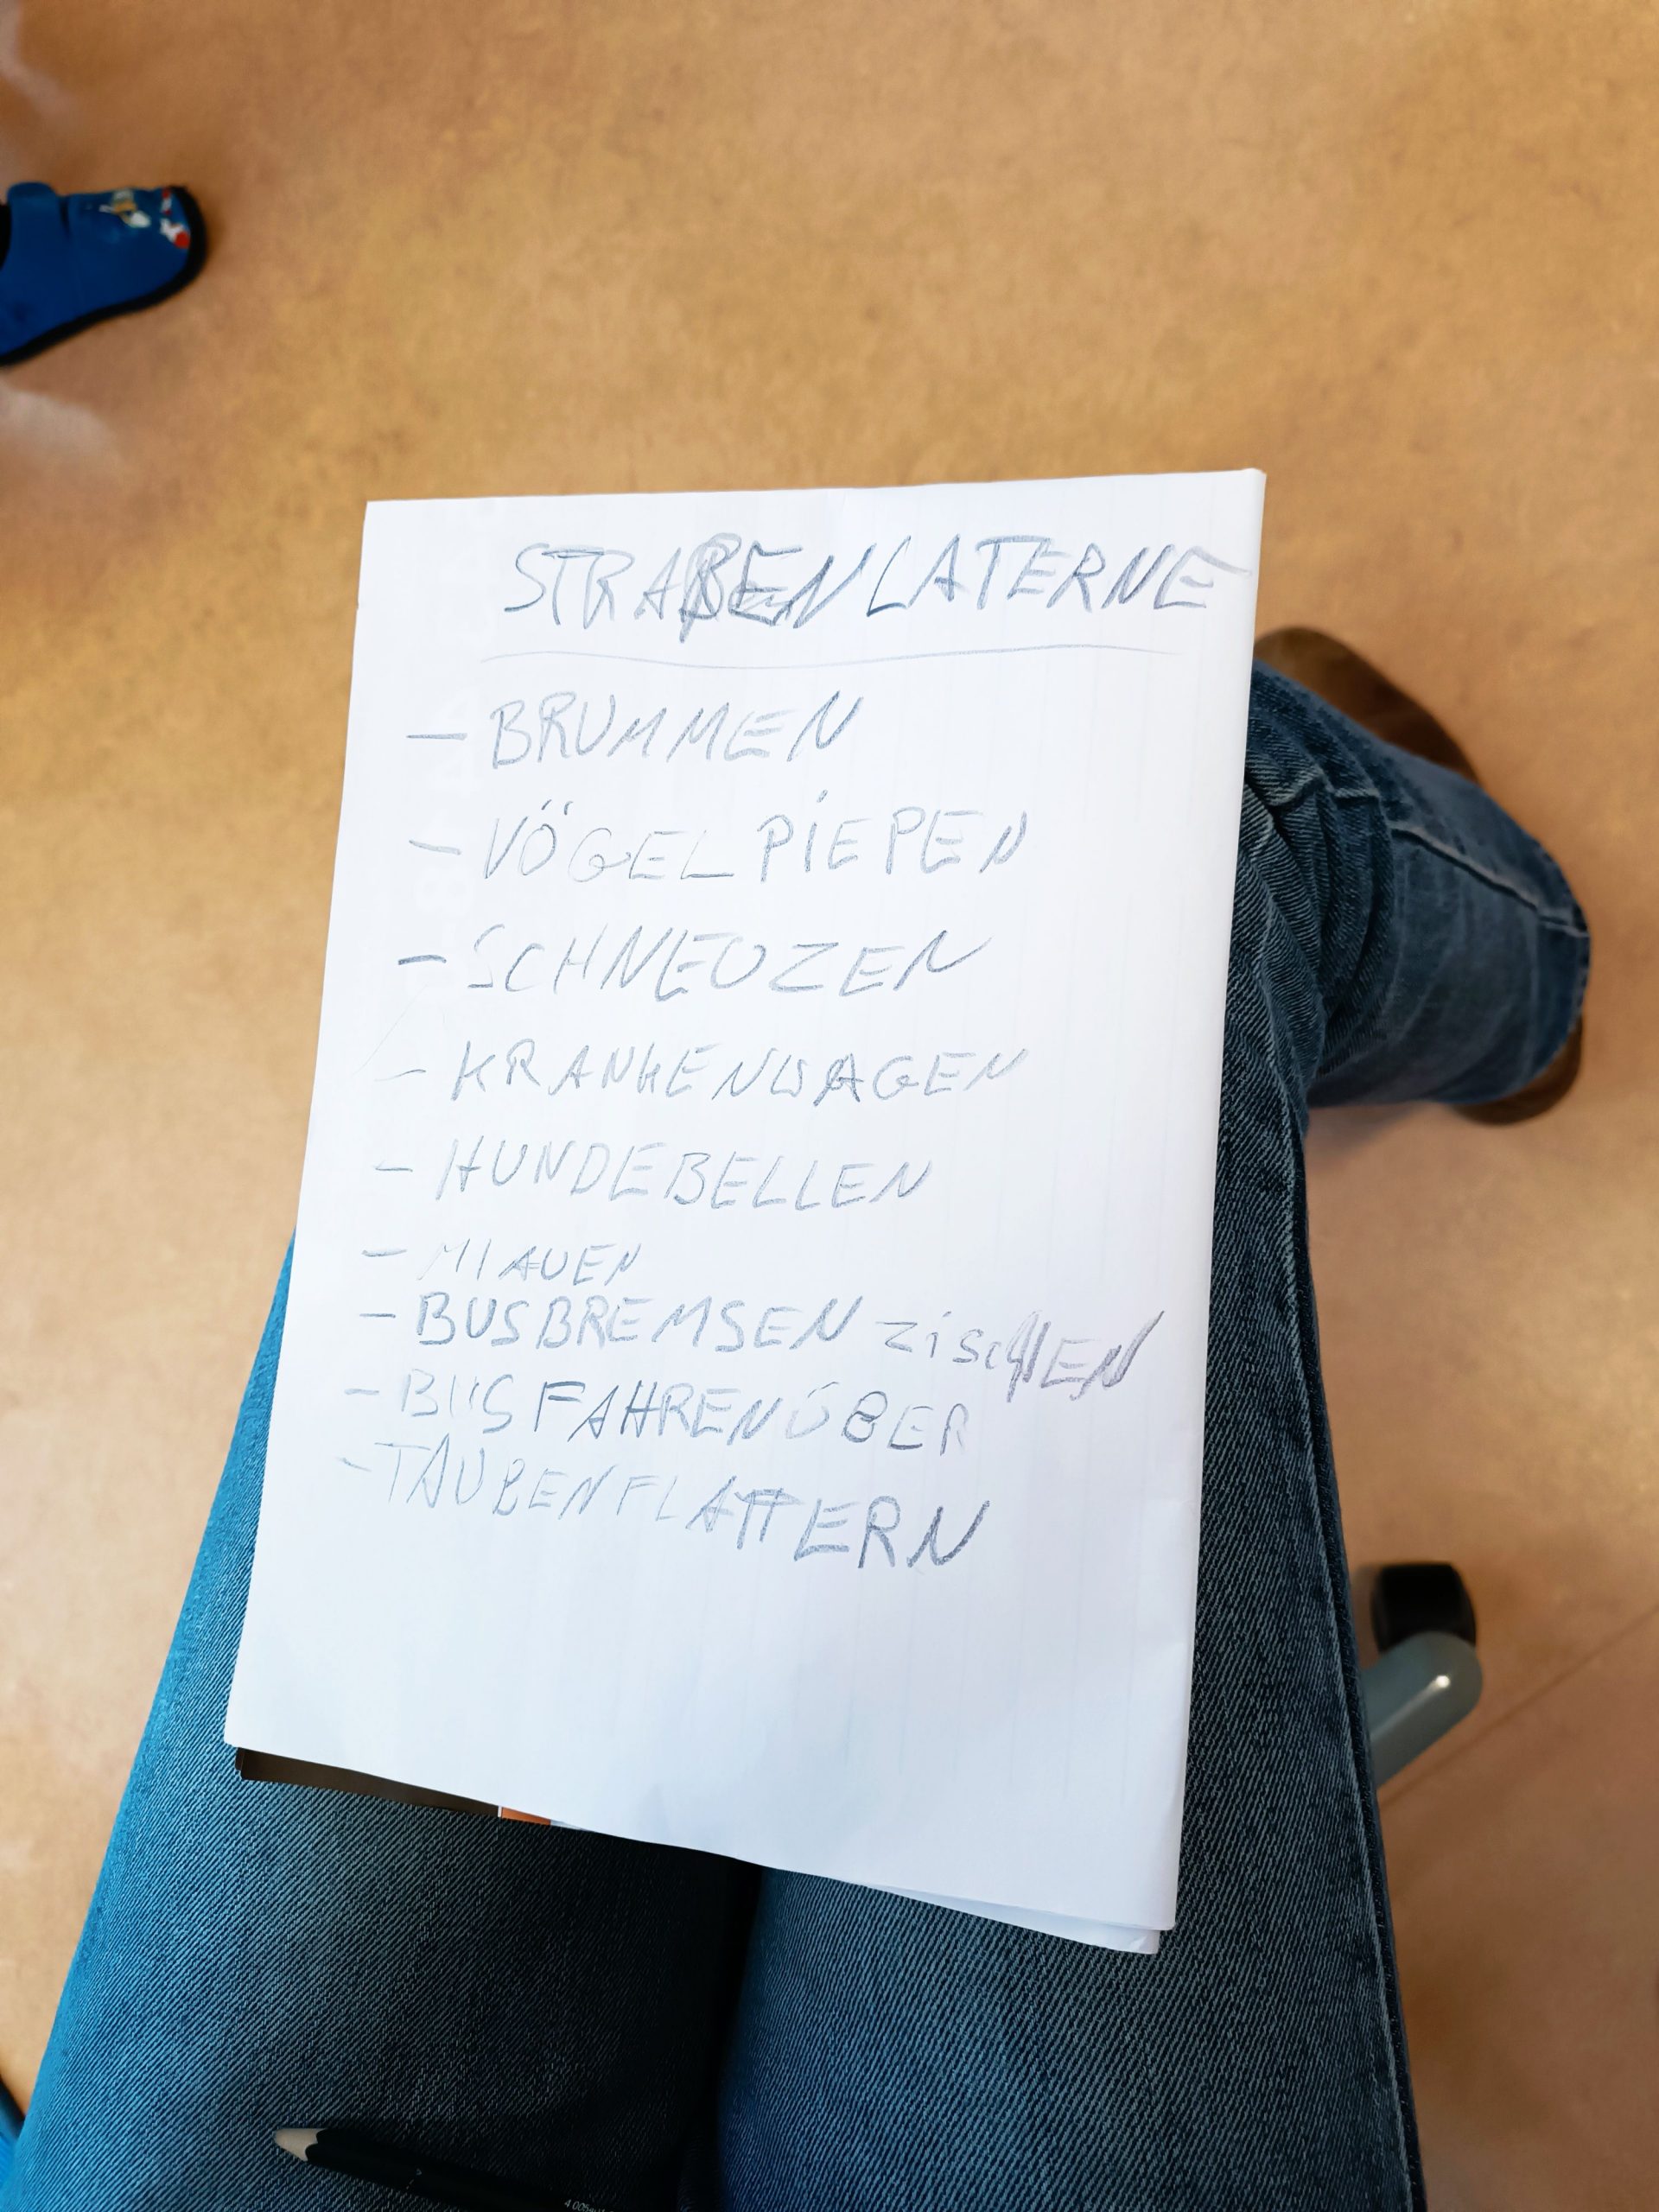 STRAßENLATERNE
- BRUMMEN
- VÖGEL PIEPEN
- SCHNEUZEN
- KRANKENWAGEN
- HUNDEBELLEN
- MIAUEN
- BUSBREMSEN ZiSCHEN
- BUS FAHREN ÜBER
- TAUBENFLATTERN